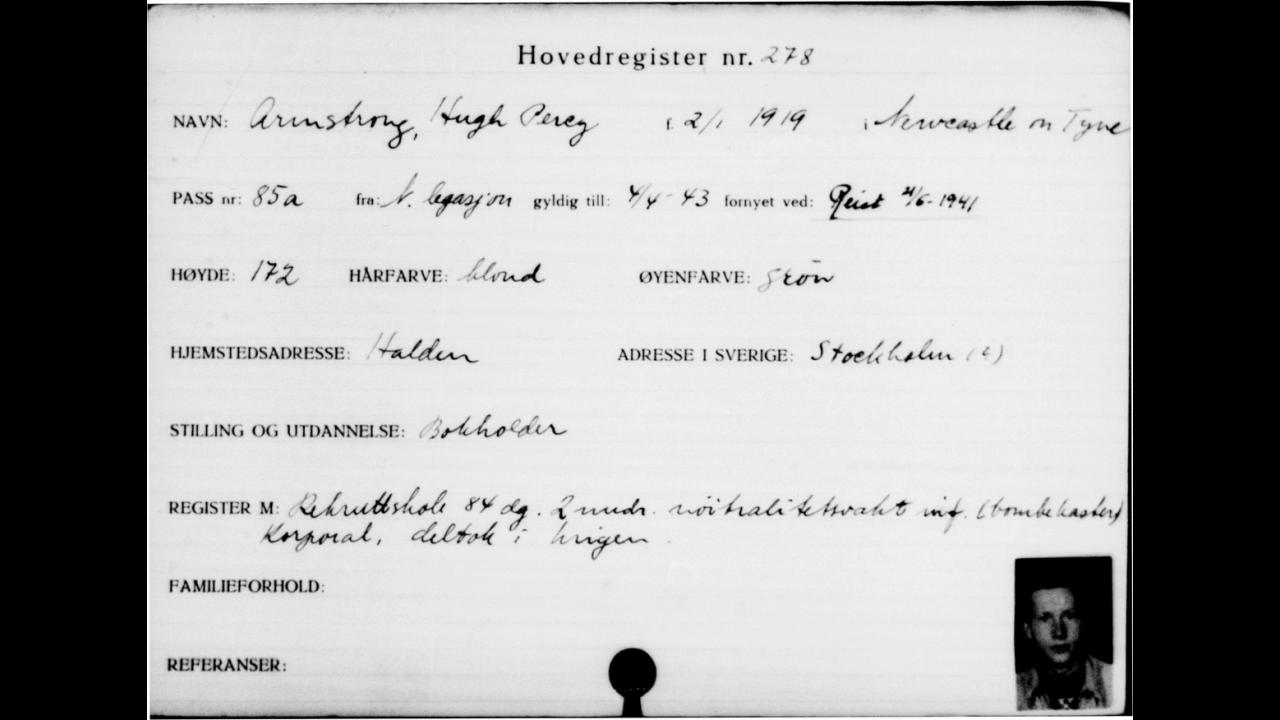 Hovedregister nr. 278
NAVN: Armstrong, Hugh Percy f. 2/1 1919 i Newcastle on Tyne
PASS nr: 85a fra: N. legasjon gyldig till: 4/4-43 fornyet ved: Reist 4/6-1941
HØYDE: 172 HÅRFARVE: blond ØYENFARVE: grön
HJEMSTEDSADRESSE: Halden ADRESSE I SVERIGE: Stockholm
STILLING OG UTDANNELSE: Bokholder
REGISTER M: Rekruttskole 84 dg. 2 mndr. nöitralitetsvakt inf. (bombekaster)
Korporal, deltok i krigen.
FAMILIEFORHOLD:
REFERANSER: